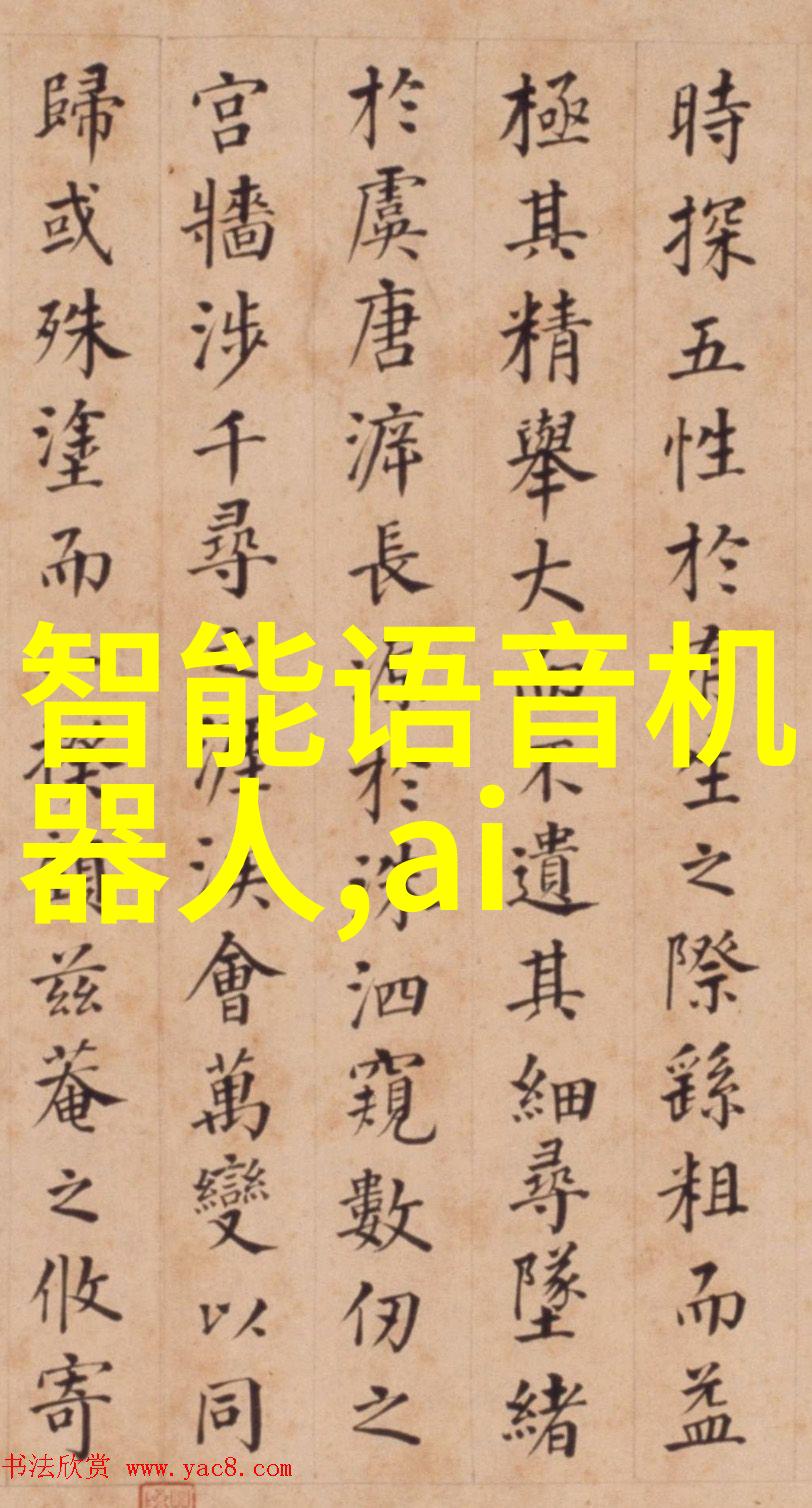 時探五性於有生之際繇粗而益
極其精舉大而不遺其細尋墜緒
於虞唐長源於洙泗窺數仞之
宮牆涉千尋之涯涘會萬變以同
歸或殊塗而一揆茲菴之攸寄
智能语音机
器人,ai
书法欣赏 www.yac8.com